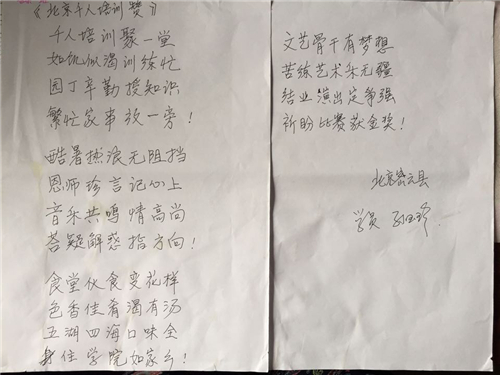 《北京千人培训赞》
千人培训聚一堂
如饥似渴训练忙
园丁辛勤授知识
繁忙家事放一旁！
酷暑热浪无阻挡
恩师珍言记心上
音乐共鸣情高尚
答疑解惑指方向！
食堂伙食变花样
色香佳肴渴有汤
五湖四海口味全
身住学院如家乡！
文艺骨干有梦想
苦练艺术永无疆
结业演出定争强
祈盼比赛获金奖！
北京密云县
学员